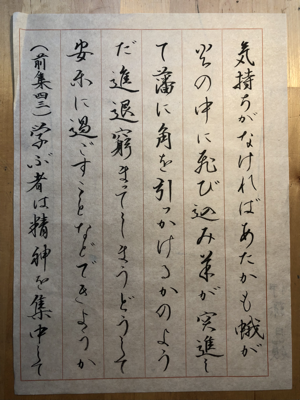 気持ちがなければあたかも蛾が
火の中に飛び込み羊が突進し
て藩に角を引っかけるかのよう
だ進退窮まってしまうどうして
安楽に過ごすことなどできようか
(前集四三)学ぶ者は精神を集中して